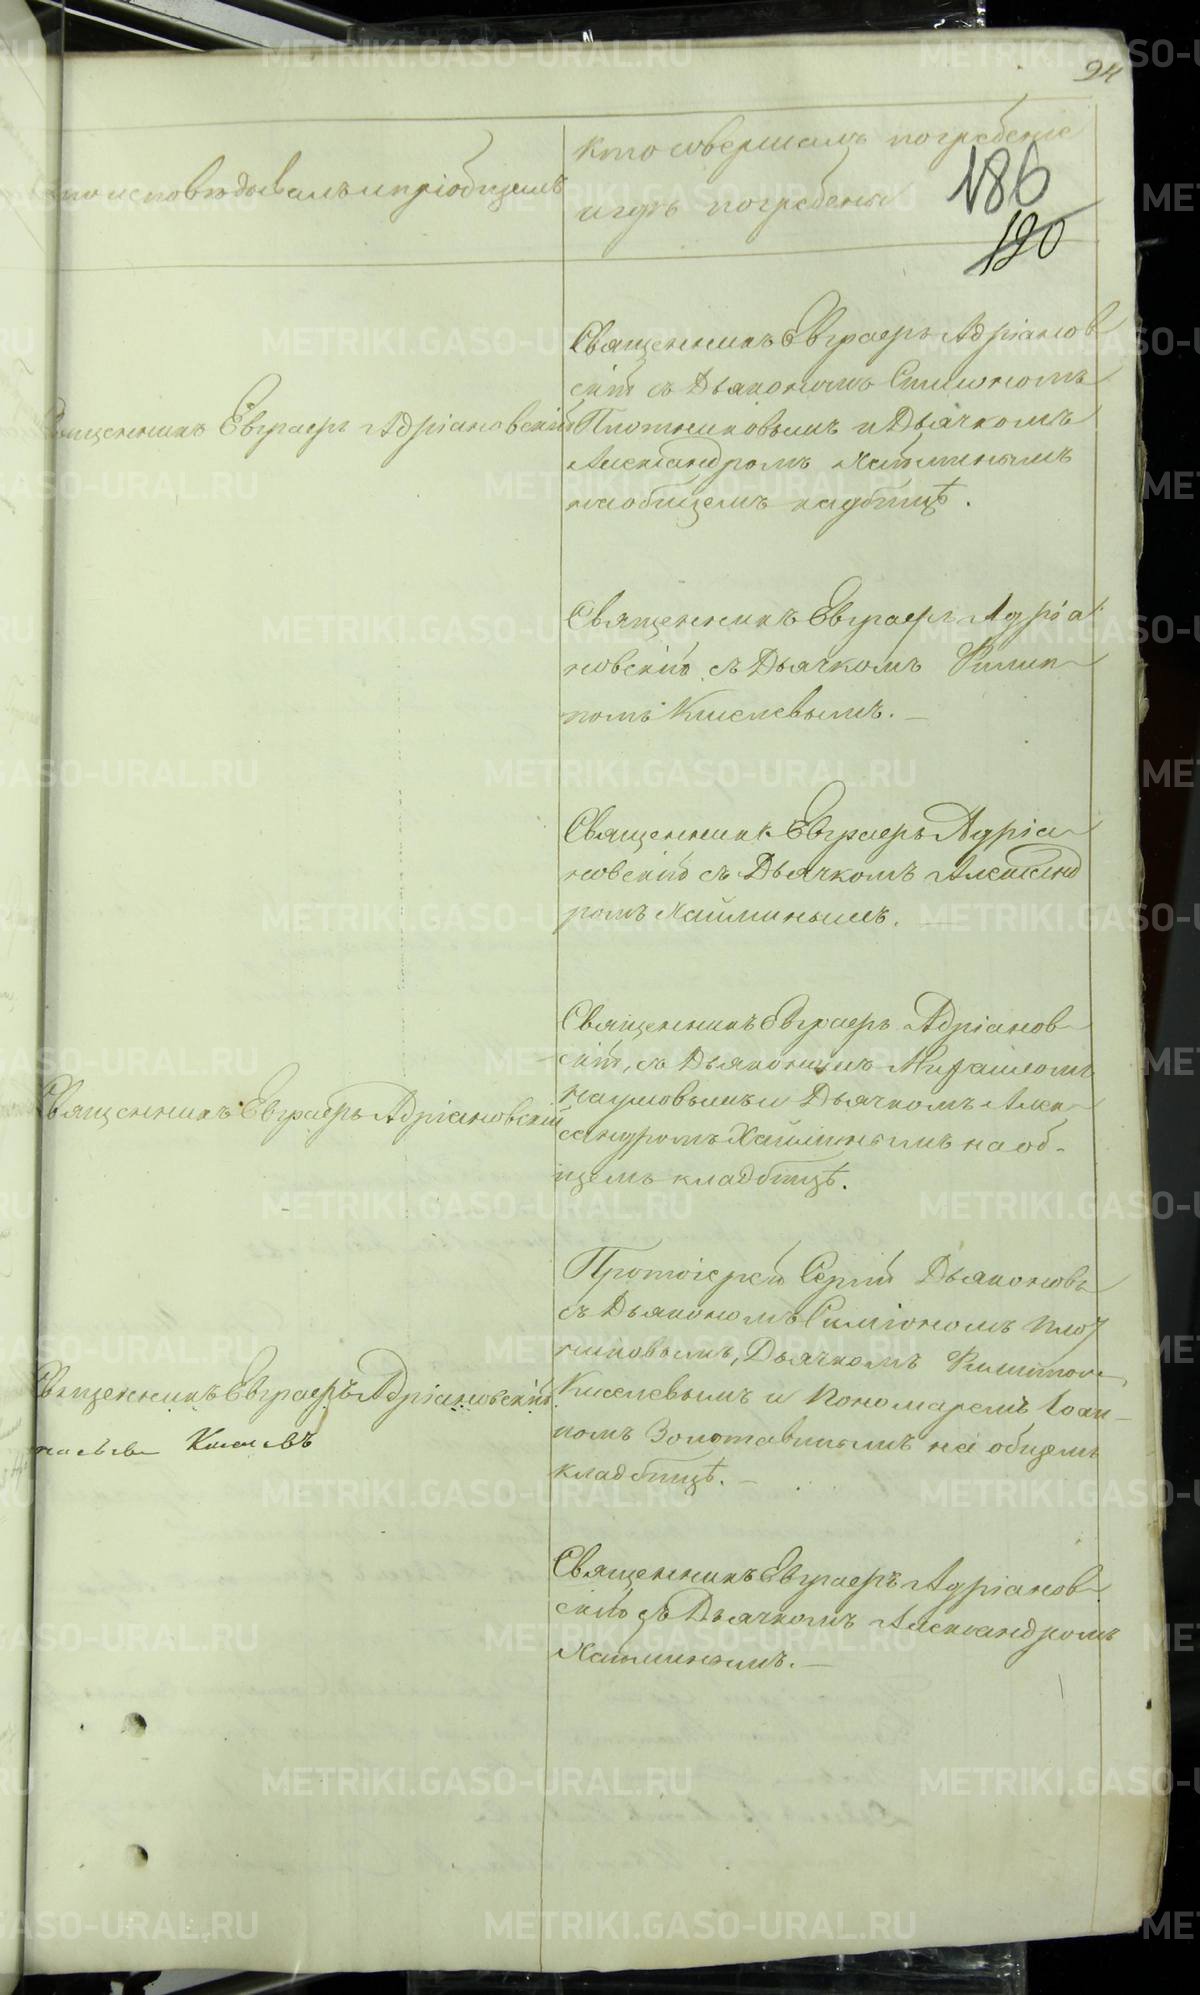 94
кто исповѣдовалъ и пріобщалъ
кто совершалъ погребеніе
и гдѣ погребены
186
120
Священникъ Евграфъ Адріановскій
Священникъ Евграфъ Адріанов
скій съ Діакономъ Симеономъ
Плотниковымъ и Дьячкомъ
Александромъ Хайминымъ
на общемъ кладбищѣ.
Священникъ Евграфъ Адріа
новскій съ Дьячкомъ Филип
помъ Киселевымъ.
Священникъ Евграфъ Адріа
новскій съ Дьячкомъ Александ
ромъ Хайминымъ.
Священникъ Евграфъ Адріановскій
Священникъ Евграфъ Адріанов
скій, съ Дьякономъ Михаиломъ
Наумовымъ и Дьячкомъ Алек
сандромъ Хайминымъ на об-
щемъ кладбищѣ.
Священникъ Евграфъ Адріановскій
Киселевъ
Протоіерей Сергій Дьяконовъ
съ Дьякономъ Симіономъ Плот
никовымъ, Дьячкомъ Филиппомъ
Киселевымъ и Пономаремъ Іоан
номъ Золотавинымъ на общемъ
кладбищѣ.
Священникъ Евграфъ Адріанов
скій съ Дьячкомъ Александромъ
Хайминымъ.
METRIKI.GASO-URAL.RU